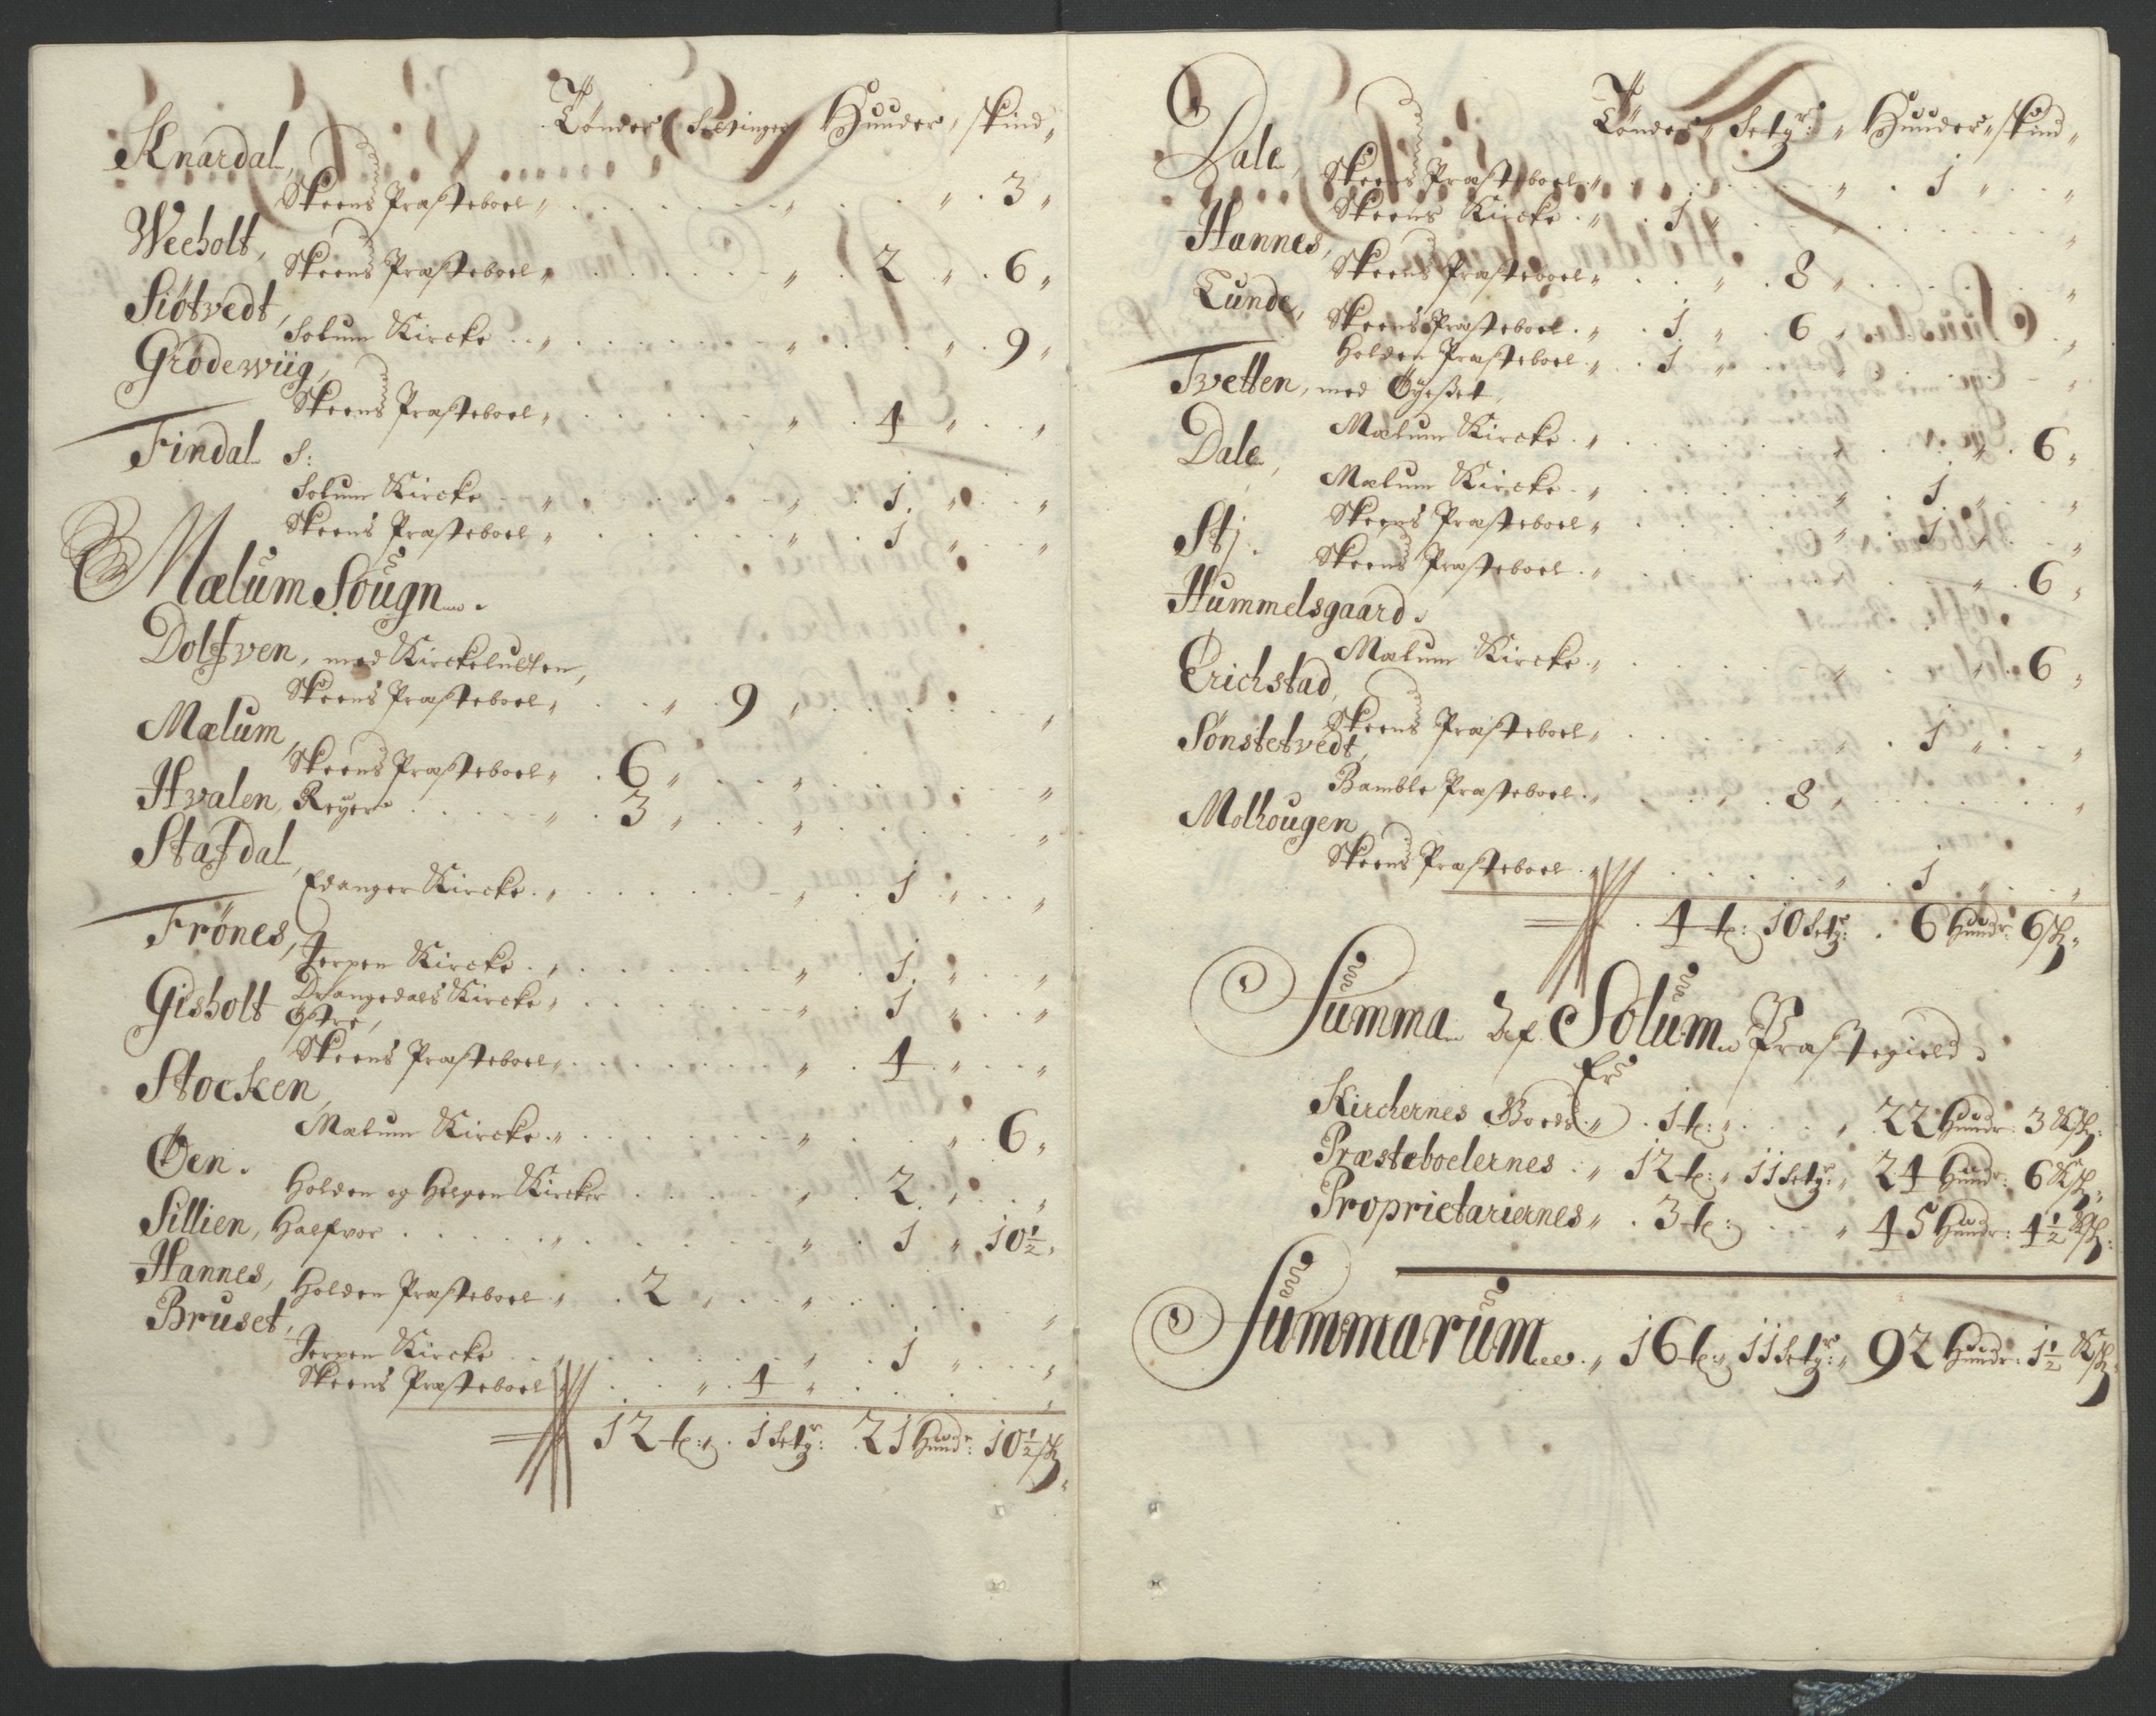 Tønder, Setinger, Hunder, skind,
Knardal,
Skeens Præsteboel " . . . " . . " . 3 "
Weeholt,
Skeens Præsteboel " . . . " . 2 " . 6 "
Siøtvedt,
Solum Kircke . . " . . . " . . " . 9 "
Grødewiig,
Skeens Præsteboel " . . . " . 4 " . . "
Findal S:
Solum Kircke . . " . . . " . 1 " . . "
Skeens Præsteboel " . . . " . 1 " . . "
Mælum Sougn.
Dolfven, med Kirckelutten,
Skeens Præsteboel " . . " . 9 " . . . "
Mælum,
Skeens Præsteboel " . 6 " . . " . . . "
Hvalen, Reyer . . . " . 3 " . . " . . . "
Stafdal,
Edanger Kircke . " . . . " . 1 " . . "
Frønes,
Jerpen Kircke . " . . . " . 1 " . . "
Drangedals Kircke " . . . . 1 " . . "
Gisholt Østre,
Skeens Præsteboel " . . . " . 4 " . . "
Stocken,
Mælum Kircke . " . . . " . . " . 6 "
Øen.
Holden og Helgen Kircker . . . " . 2 " . . "
Sillien, Halfvor . . . " . . . " . 1 " . 10½ "
Hannes, Holden Præsteboel . " . 2 " . . " . . . "
Bruset,
Jerpen Kircke . . " . . . " . 1 " . . "
Skeens Præsteboel " . . " . 4 " . . . "
12 t: " . 1 Setgr: 21 Hundr: 10½ sk "
Tønder " Setgr: " Hunder " skind "
Dale,
Skeens Præsteboel " . . . " . 1 " . . "
Skeens Kircke . " . 1 " . . . "
Hannes,
Skeens Præsteboel " . . " . 8 " . . . "
Lunde,
Skeens Præsteboel . " . 1 " . 6 " . . . "
Holden Præsteboel . " . 1 " . . . "
Tvetten, med Øyesæt,
Mælum Kircke . " . . . " . . " . 6 "
Dale,
Mælum Kircke . " . . . " . 1 " . . "
Skeens Præsteboel " . . . " . 1 " . . "
Sti.
Skeens Præsteboel . " . . . . " . 6 "
Hummelsgaard.
Mælum Kircke . " . . . " . . " . 6 "
Erichstad,
Skeens Præsteboel " . . . " . 1 " . . "
Sønstetvedt,
Bamble Præsteboel . " . . " . 8 " . . . "
Molhougen,
Skeens Præsteboel . " . . . " . 1 " . . "
. 4 t: 10 Setgr: . 6 Hundr: 6 sk "
Summa Af Solum Præstegield.
Er
Kirckernes Goeds . " . 1 t: " . . " 22 Hundr: 3 Sk:
Præsteboelernes : " 12 t: " 11 Setgr: " 24 Hundr: 6 Sk:
Proprietariernes " . 3 t: . . " 45 Hundr: 4½ Sk:
Summarum . " 16 t: " 11 Setgr: " 92 Hundr: 1½ Sk: